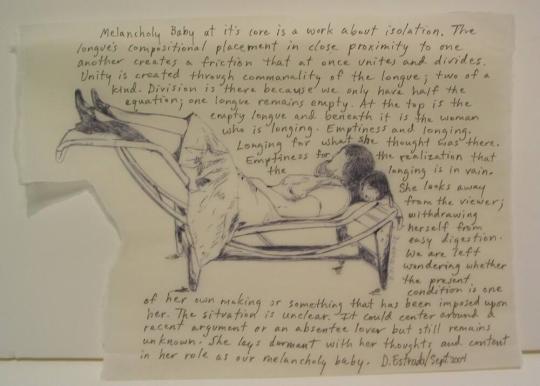 Melancholy Baby at it's core is a work about isolation. The
longue's compositional placement in close proximity to one
another creates a friction that at once unites and divides.
Unity is created through commonality of the longue; two of a
kind. Division is there because we only have half the
equation; one longue remains empty. At the top is the
empty longue and beneath it is the woman
who is longing. Emptiness and longing.
Longing for what she thought was there.
Emptiness for the realization that
the longing is in vain.
She looks away
from the viewer;
withdrawing
herself from
easy digestion.
We are left
wondering whether
the present
condition is one
of her own making or something that has been imposed upon
her. The situation is unclear. It could center around a
recent argument or an absentee lover but still remains
unknown. She lays dormant with her thoughts and content
in her role as our melancholy baby. D. Estrada/Sept. 2004